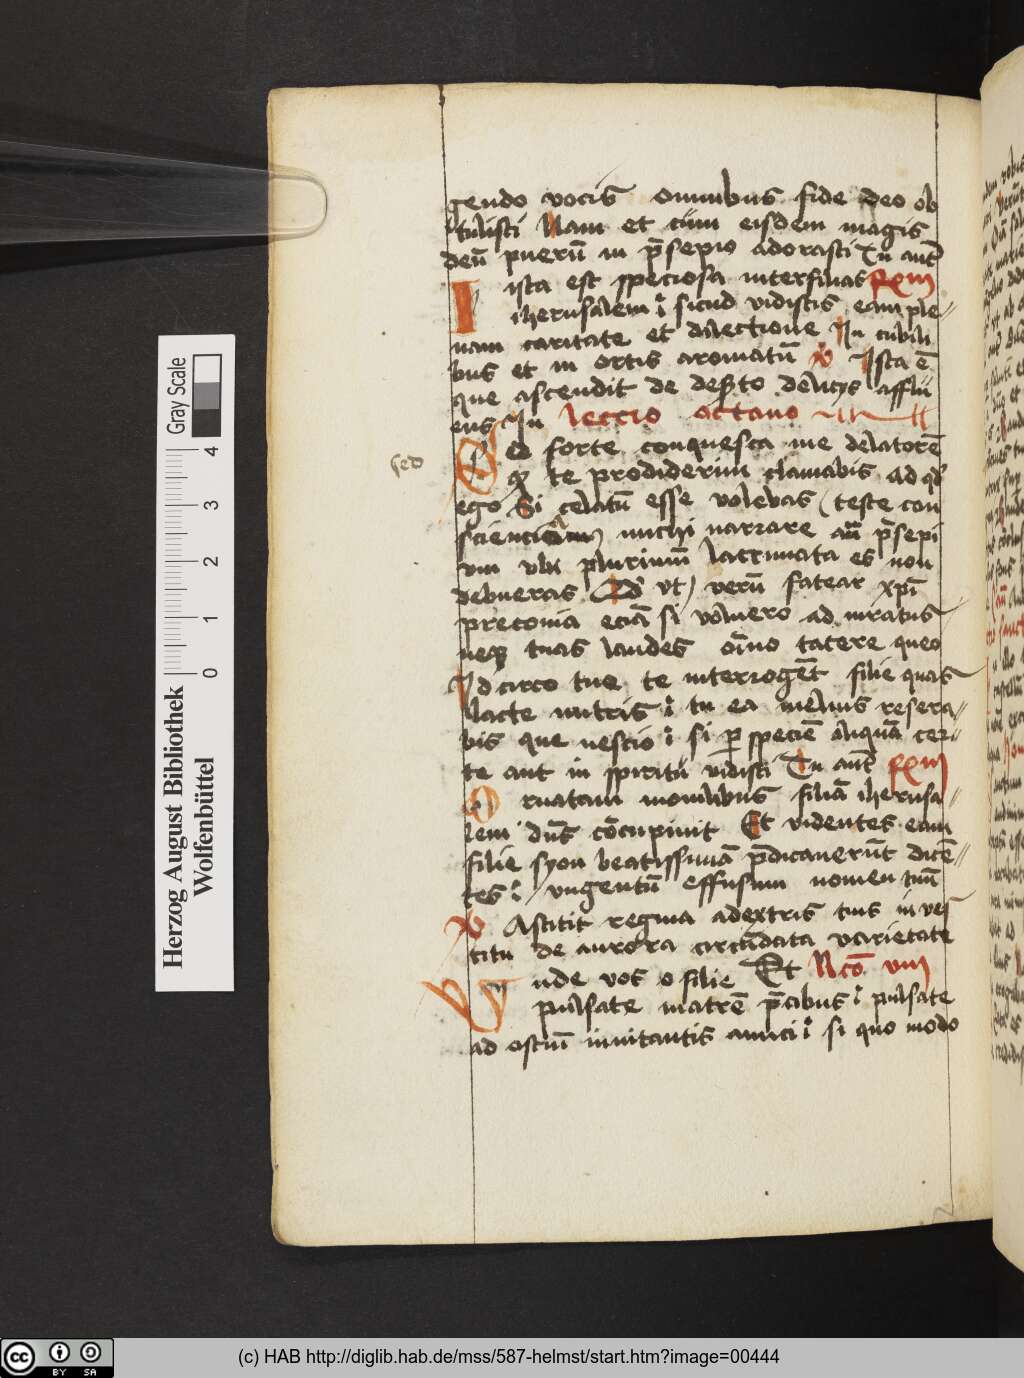 gendo vocis omnibus fide deo ob
tulisti Nam et cum eisdem magis
deū puerū in p̄sepio adorasti Tu aūt
Ista est speciosa inter filias R̄m
iherusalem sicud vidistis eam ple
nam caritate et dilectione In cubili
bus et in ortis aromatū v̄ Ista ē
que ascendit de deserto deliciis afflu
ens In leccio octava
Sed forte conquesta me delatorē
qr te prodiderim clamabis ad qd
ego Si celatū esse volebas teste con
sciencia michi narrare aut p̄sepi
um ubi plurimū lacrimata es non
debueras Sed ut verū fatear xp̄i
preconia eciā si voluero ad iuratus
neqz tuas laudes oīno tacere queo
Idcirco tue te interrogēt filie quas
lacte nutris tu ea melius resera
bis que nescio si per speciē aliquā cer
te aut in spiritu vidisti Tu aūt R̄m
Ornatam monilibus filiā iherusa
lem dn̄s cōcupivit Et videntes eam
filie syon beatissimā p̄dicaverūt dicē
tes ungentū effusum nomen tuū
v̄ Astitit regina adextris tuis in ves
titu de aurora circūdata varietate
Unde vos o filie Et Rco viii
pulsate matrē p̄cibus pulsate
ad ostiū invitantis amici si quo modo
sed
Gray Scale
0 1 2 3 4
Herzog August Bibliothek
Wolfenbüttel
cc BY SA
(c) HAB http://diglib.hab.de/mss/587-helmst/start.htm?image=00444